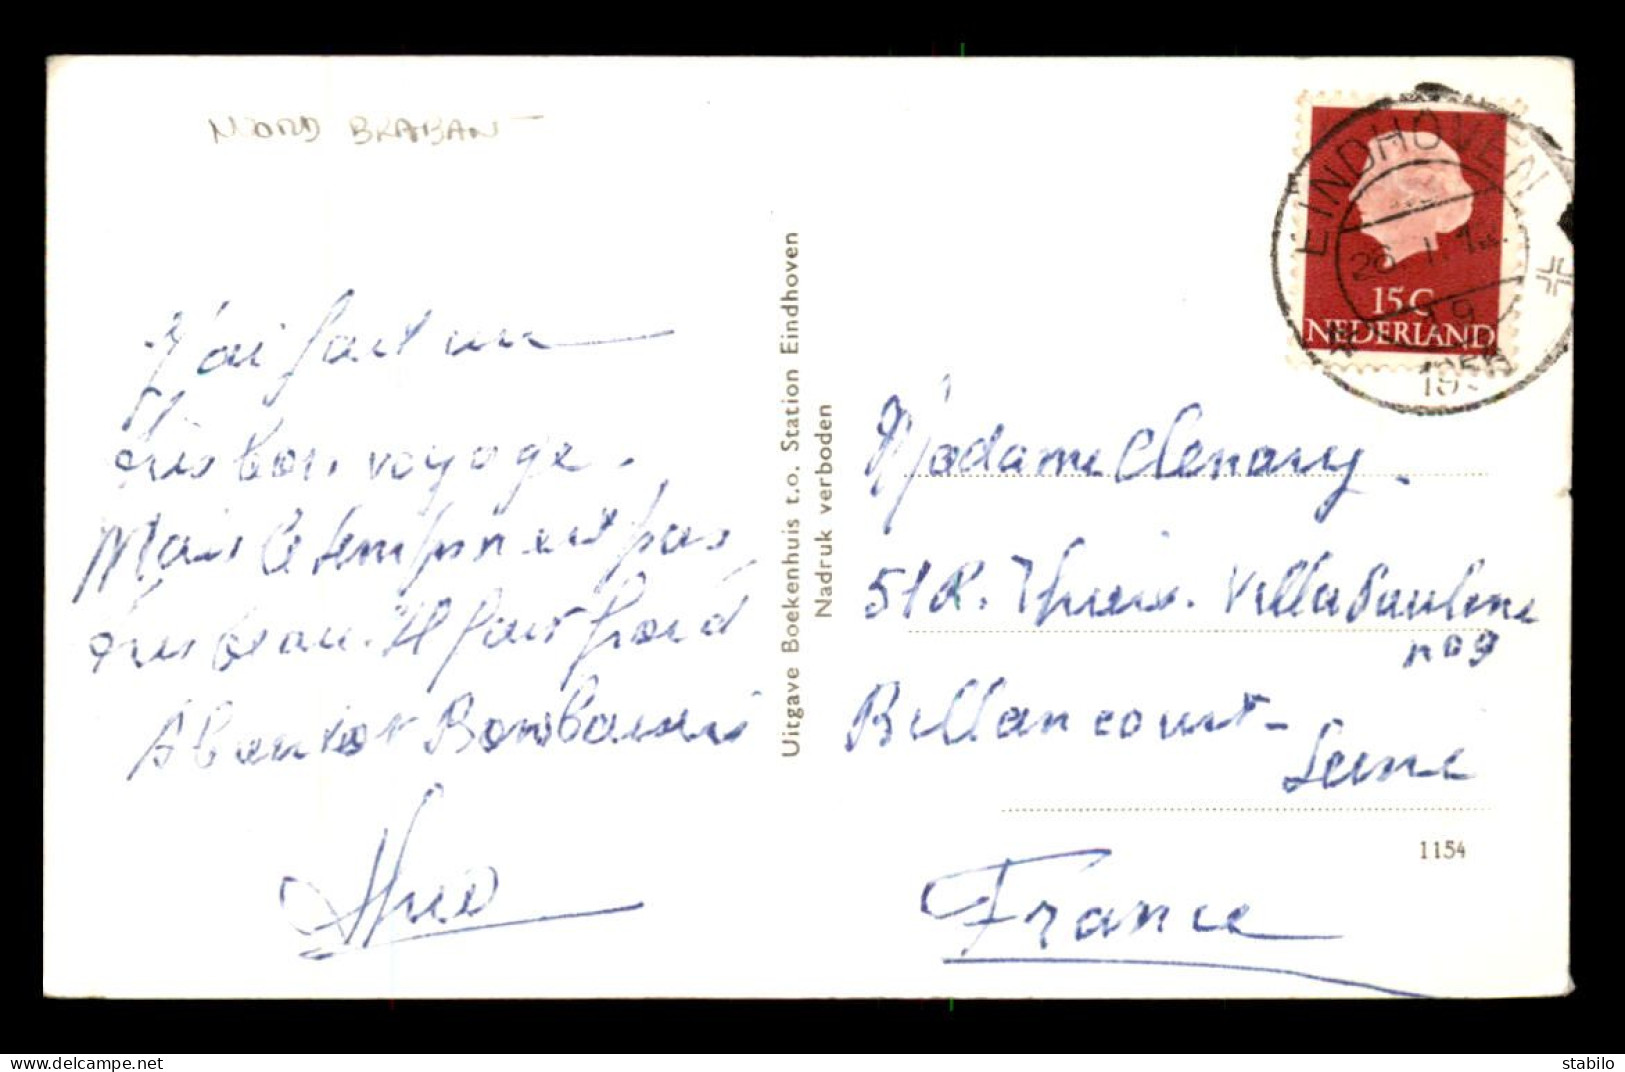 NORD BRABANT
J'ai fait un
très bon voyage.
Mais le temps n'est pas
très beau. Il fait froid
A bientot Bons baisers
Uitgave Boekenhuis t.o. Station Eindhoven
Nadruk verboden
EINDHOVEN
26 1
195
15 C
NEDERLAND
Madame Clenary.
51 R. Thiers. Villa Pauline
no 9
Billancourt-
Seine
France
1154
delcampe.net
stabilo